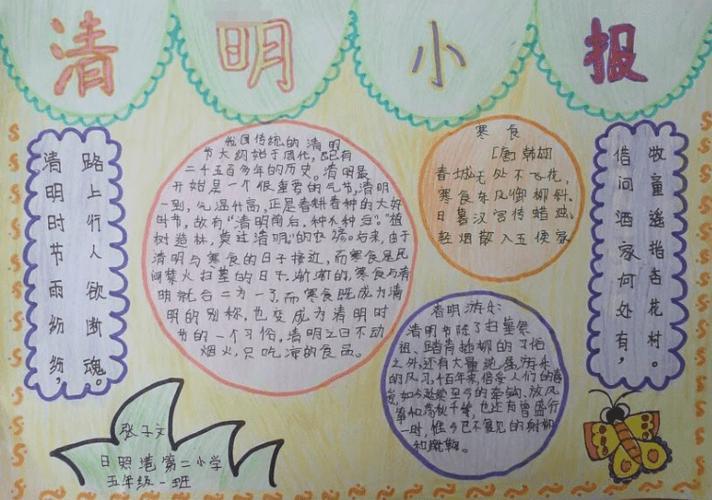 清明小报
清明时节雨纷纷，
路上行人欲断魂。
我国传统的清明
节大约始于周代，已有
二千五百多年的历史。清明最
开始是一个很重要的节气，清明
一到，气温升高，正是春耕春种的大好
时节，故有“清明前后，种瓜种豆”。“植
树造林，莫过清明”的农谚。后来，由于
清明与寒食的日子接近，而寒食是民
间禁火扫墓的日子，渐渐的，寒食与清
明就合二为一了，而寒食既成为清
明的别称，也变成为清明时
节的一个习俗，清明之日不动
烟火，只吃凉的食品。
寒食
［唐］韩翃
春城无处不飞花，
寒食东风御柳斜。
日暮汉宫传蜡烛，
轻烟散入五侯家
借问酒家何处有，
牧童遥指杏花村。
清明游乐
清明节除了扫墓祭
祖、踏青插柳的习俗
之外，还有大量
的风习，千百年来，倍受人们的喜
放风
筝和荡秋千等，也还有曾盛行
一时，惟今已不复见的射柳
和蹴鞠。
张子文
日照港第二小学
五年级一班